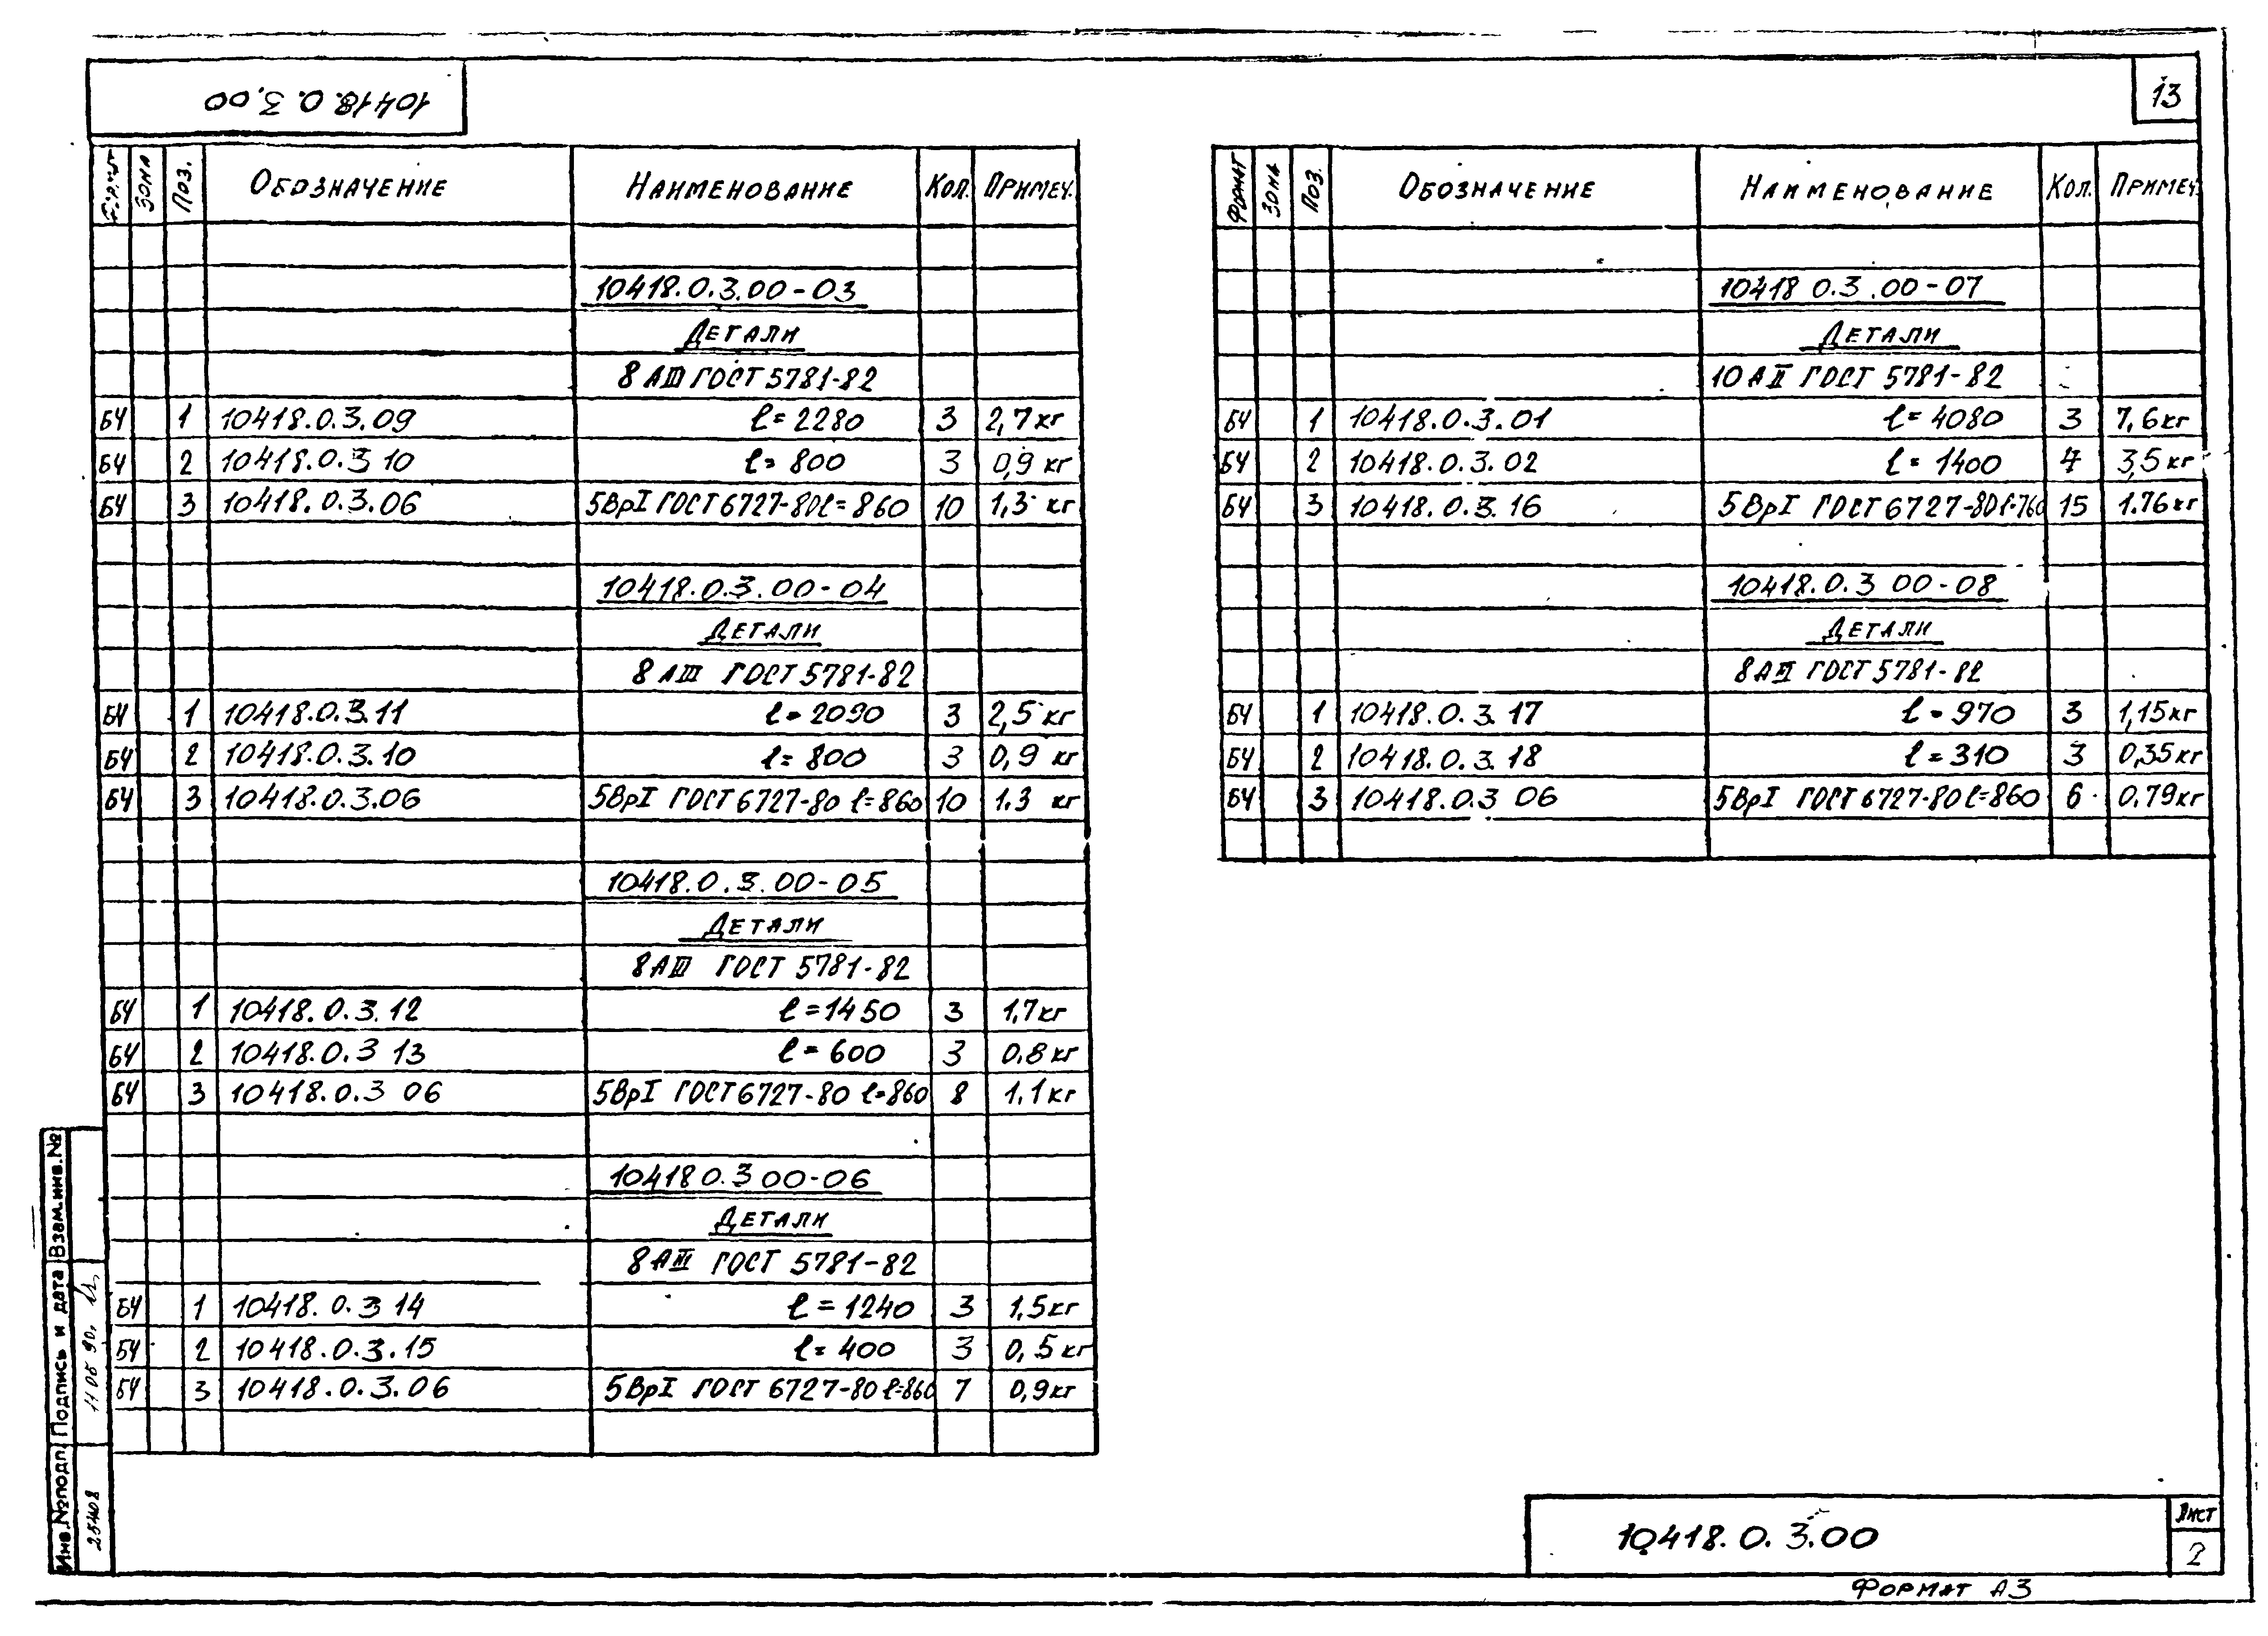 10418.0.3.00
13
Формат Зона Поз. Обозначение Наименование Кол. Примеч.
10418.0.3.00-03
Детали
8 АIII ГОСТ 5781-82
БЧ 1 10418.0.3.09 ℓ=2280 3 2,7 кг
БЧ 2 10418.0.3 10 ℓ=800 3 0,9 кг
БЧ 3 10418.0.3.06 5ВрI ГОСТ 6727-80 ℓ=860 10 1,3 кг
10418.0.3.00-04
Детали
8 АIII ГОСТ 5781-82
БЧ 1 10418.0.3.11 ℓ=2090 3 2,5 кг
БЧ 2 10418.0.3.10 ℓ=800 3 0,9 кг
БЧ 3 10418.0.3.06 5ВрI ГОСТ 6727-80 ℓ=860 10 1.3 кг
10418.0.3.00-05
Детали
8 АIII ГОСТ 5781-82
БЧ 1 10418.0.3.12 ℓ=1450 3 1,7 кг
БЧ 2 10418.0.3 13 ℓ=600 3 0.8 кг
БЧ 3 10418.0.3 06 5ВрI ГОСТ 6727-80 ℓ=860 8 1.1 кг
10418 0.3 00-06
Детали
8 АIII ГОСТ 5781-82
БЧ 1 10418.0.3 14 ℓ=1240 3 1,5 кг
БЧ 2 10418.0.3.15 ℓ=400 3 0,5 кг
БЧ 3 10418.0.3.06 5ВрI ГОСТ 6727-80 ℓ=860 7 0,9 кг
Формат Зона Поз. Обозначение Наименование Кол. Примеч.
10418 0.3.00-07
Детали
10 АII ГОСТ 5781-82
БЧ 1 10418.0.3.01 ℓ=4080 3 7,6 кг
БЧ 2 10418.0.3.02 ℓ=1400 4 3,5 кг
БЧ 3 10418.0.3.16 5ВрI ГОСТ 6727-80 ℓ=760 15 1.76 кг
10418.0.3 00-08
Детали
8 АIII ГОСТ 5781-82
БЧ 1 10418.0.3.17 ℓ=970 3 1,15 кг
БЧ 2 10418.0.3.18 ℓ=310 3 0,35 кг
БЧ 3 10418.0.3 06 5ВрI ГОСТ 6727-80 ℓ=860 6 0.79 кг
Инв.№подл. Подпись и дата Взам.инв.№
25408 11 06 90г.
10418.0.3.00
Лист
2
Формат А3